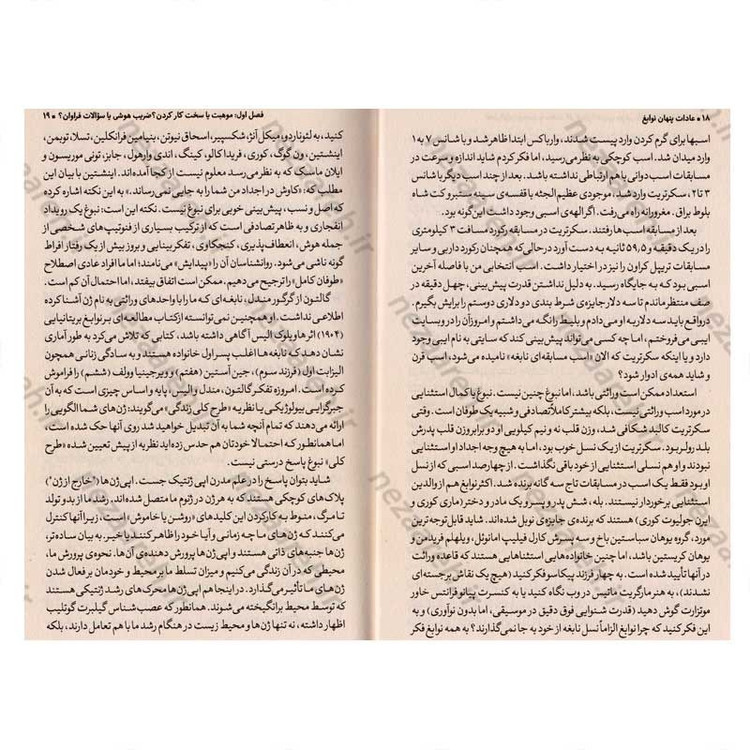 ۱۸ * عادات پنهان نوابغ
اسبها برای گرم کردن وارد پیست شدند، وارباکس ابتدا ظاهر شد و با شانس ۷ به ۱
وارد میدان شد. اسب کوچکی به نظر می‌رسید، اما فکر کردم شاید اندازه و سرعت در
مسابقات اسب دوانی با هم ارتباطی نداشته باشند. بعد از چند اسب دیگر با شانس
۳ تا ۲، سکرتریت وارد شد، موجودی عظیم‌الجثه با قفسه‌ی سینه ستبر و کت شاه
بلوط براق. مغرورانه راه می‌رفت. اگر الهه‌ی اسبی وجود داشت این‌گونه بود.
بعد از مسابقه‌ی اسب سواری، سکرتریت در مسابقه رکورد مسافت ۳ کیلومتری
را در یک دقیقه و ۵۹٫۵ ثانیه به دست آورد درحالی‌که همچنان رکورد داربی و سایر
مسابقات تریپل کراون را نیز در اختیار داشت. اسب انتخابی من با فاصله آخرین
اسبی بود که به جایگاه رسید. به دلیل نداشتن قدرت پیش‌بینی، چهل دقیقه در
صف منتظر ماندم تا سه دلار جایزه‌ی شرط بندی دو دلاری دوستم را برایش بگیرم.
در واقع باید سه دلار به او می‌دادم و بلیط را نگه می‌داشتم و امروز آن را در وبسایت
ایبی می‌فروختم، اما چه کسی می‌تواند پیش‌بینی کند که سایتی به نام ایبی وجود
دارد و یا اینکه سکرتریت که الان «اسب مسابقه‌ای نابغه» نامیده می‌شود، اسب قرن
و شاید همه‌ی ادوار شود؟
استعداد ممکن است وراثتی باشد، اما نبوغ چنین نیست. نبوغ یا کمال استثنایی
در مورد اسب وراثتی نیست، بلکه بیشتر کاملاً تصادفی و شبیه یک طوفان است. وقتی
سکرتریت کالبد شکافی شد، وزن قلب نه ونیم کیلویی او دو برابر وزن قلب پدرش
بلد رولر بود. سکرتریت از یک نسل خوب بود، اما به هیچ وجه اجداد او استثنایی
نبودند و او هم نسلی استثنایی از خود باقی نگذاشت. از چهارصد اسبی که از نسل
او بود فقط یک اسب در مسابقات تاج سه گانه برنده شد. اکثر نوابغ هم از والدین
استثنایی برخوردار نیستند. بله، شش پدر و پسر و یک مادر و دختر (ماری کوری و
ایرن جولیوت کوری) هستند که برنده‌ی جایزه‌ی نوبل شده‌اند. شاید قابل توجه‌ترین
مورد، گروه یوهان سباستین باخ و سه پسرش کارل فیلیپ امانوئل، ویلهلم فریدمن و
یوهان کریستین باشد، اما چنین خانواده‌هایی استثناهایی هستند که قاعده: وراثت
در آنها تأیید شده است. به چهار فرزند پیکاسو فکر کنید (هیچ یک نقاش برجسته‌ای
نشدند)، به هنر مارگریت ماتیس در وب نگاه کنید یا به کنسرت پیانو فرانتس خاور
موتزارت گوش دهید (قدرت شنوایی فوق دقیق در موسیقی، اما بدون نوآوری) و به
این فکر کنید که چرا نوابغ الزاماً نسل نابغه از خود به جا نمی‌گذارند؟ به همه نوابغ فکر
فصل اول: موهبت یا سخت کار کردن؟ ضریب هوشی یا سؤالات فراوان؟ * ۱۹
کنید، به لئوناردو، میکل آنژ، شکسپیر، اسحاق نیوتن، بنیامین فرانکلین، تسلا، توبمن،
اینشتین، ون گوگ، کوری، فریدا کالو، کینگ، اندی وارهول، جابز، تونی موریسون و
ایلان ماسک که به نظر می‌رسد معلوم نیست از کجا آمده‌اند. اینشتین با بیان این
مطلب که: «کاوش در اجداد من شما را به جایی نمی‌رساند.» به این نکته اشاره کرده
که اصل و نسب، پیش‌بینی خوبی برای نبوغ نیست. نکته این است: نبوغ یک رویداد
انفجاری و به ظاهر تصادفی است که از ترکیب بسیاری از فنوتیپ‌های شخصی از
جمله هوش، انعطاف‌پذیری، کنجکاوی، تفکر بینایی و بروز بیش از یک رفتار افراط
گونه ناشی می‌شود. روانشناسان آن را «پیدایش» می‌نامند؛ اما ما افراد عادی اصطلاح
«طوفان کامل» را ترجیح می‌دهیم. ممکن است اتفاق بیفتد، اما احتمال آن کم است.
گالتون از گرگور مندل، نابغه‌ای که ما را با واحدهای وراثتی به نام ژن آشنا کرده
اطلاعی نداشت. او همچنین نمی‌توانسته از کتاب مطالعه‌ای بر نوابغ بریتانیایی
(۱۹۰۴) اثر هاولوک الیس آگاهی داشته باشد، کتابی که تلاش می‌کرد به طور آماری
نشان دهد که نابغه‌ها اغلب پسر اول خانواده هستند و به سادگی زنانی همچون
الیزابت اول (فرزند سوم)، جین آستین (هفتم) و ویرجینیا وولف (ششم) را فراموش
کرده است. امروزه تفکر گالتون، مندل و الیس، پایه و اساس چیزی است که به آن
جبرگرایی بیولوژیکی یا نظریه «طرح کلی زندگی» می‌گویند: ژن‌های شما الگویی را
ارائه می‌دهند که تمام آنچه شما به آن تبدیل خواهید شد روی آنها حک شده است.
اما همانطور که احتمالا خودتان هم حدس زده‌اید نظریه از پیش تعیین شده «طرح
کلی» نبوغ پاسخ درستی نیست.
شاید بتوان پاسخ را در علم مدرن اپی ژنتیک جست. اپی‌ژن‌ها ("خارج از ژن")
پلاک‌های کوچکی هستند که به هر ژن در ژنوم ما متصل شده‌اند. رشد ما از بدو تولد
تا مرگ، منوط به کار کردن این کلیدهای «روشن یا خاموش» است، زیرا آنها کنترل
می‌کنند که ژن‌های ما چه زمانی و آیا خود را ظاهر کنند یا خیر. به بیان ساده‌تر،
ژن‌ها جنبه‌های ذاتی هستند و اپی‌ژن‌ها پرورش دهنده‌ی آن‌ها. نحوه‌ی پرورش ما،
محیطی که در آن زندگی می‌کنیم و میزان تسلط ما بر محیط و خودمان بر فعال شدن
ژن‌های ما تأثیر می‌گذارد. در اینجا هم اپی ژن‌ها محرک‌های رشد ژنتیکی هستند
که توسط محیط برانگیخته می‌شوند. همانطور که عصب‌شناس گیلبرت گوتلیب
اظهار داشته، نه تنها ژن‌ها و محیط زیست در هنگام رشد ما با هم تعامل دارند، بلکه